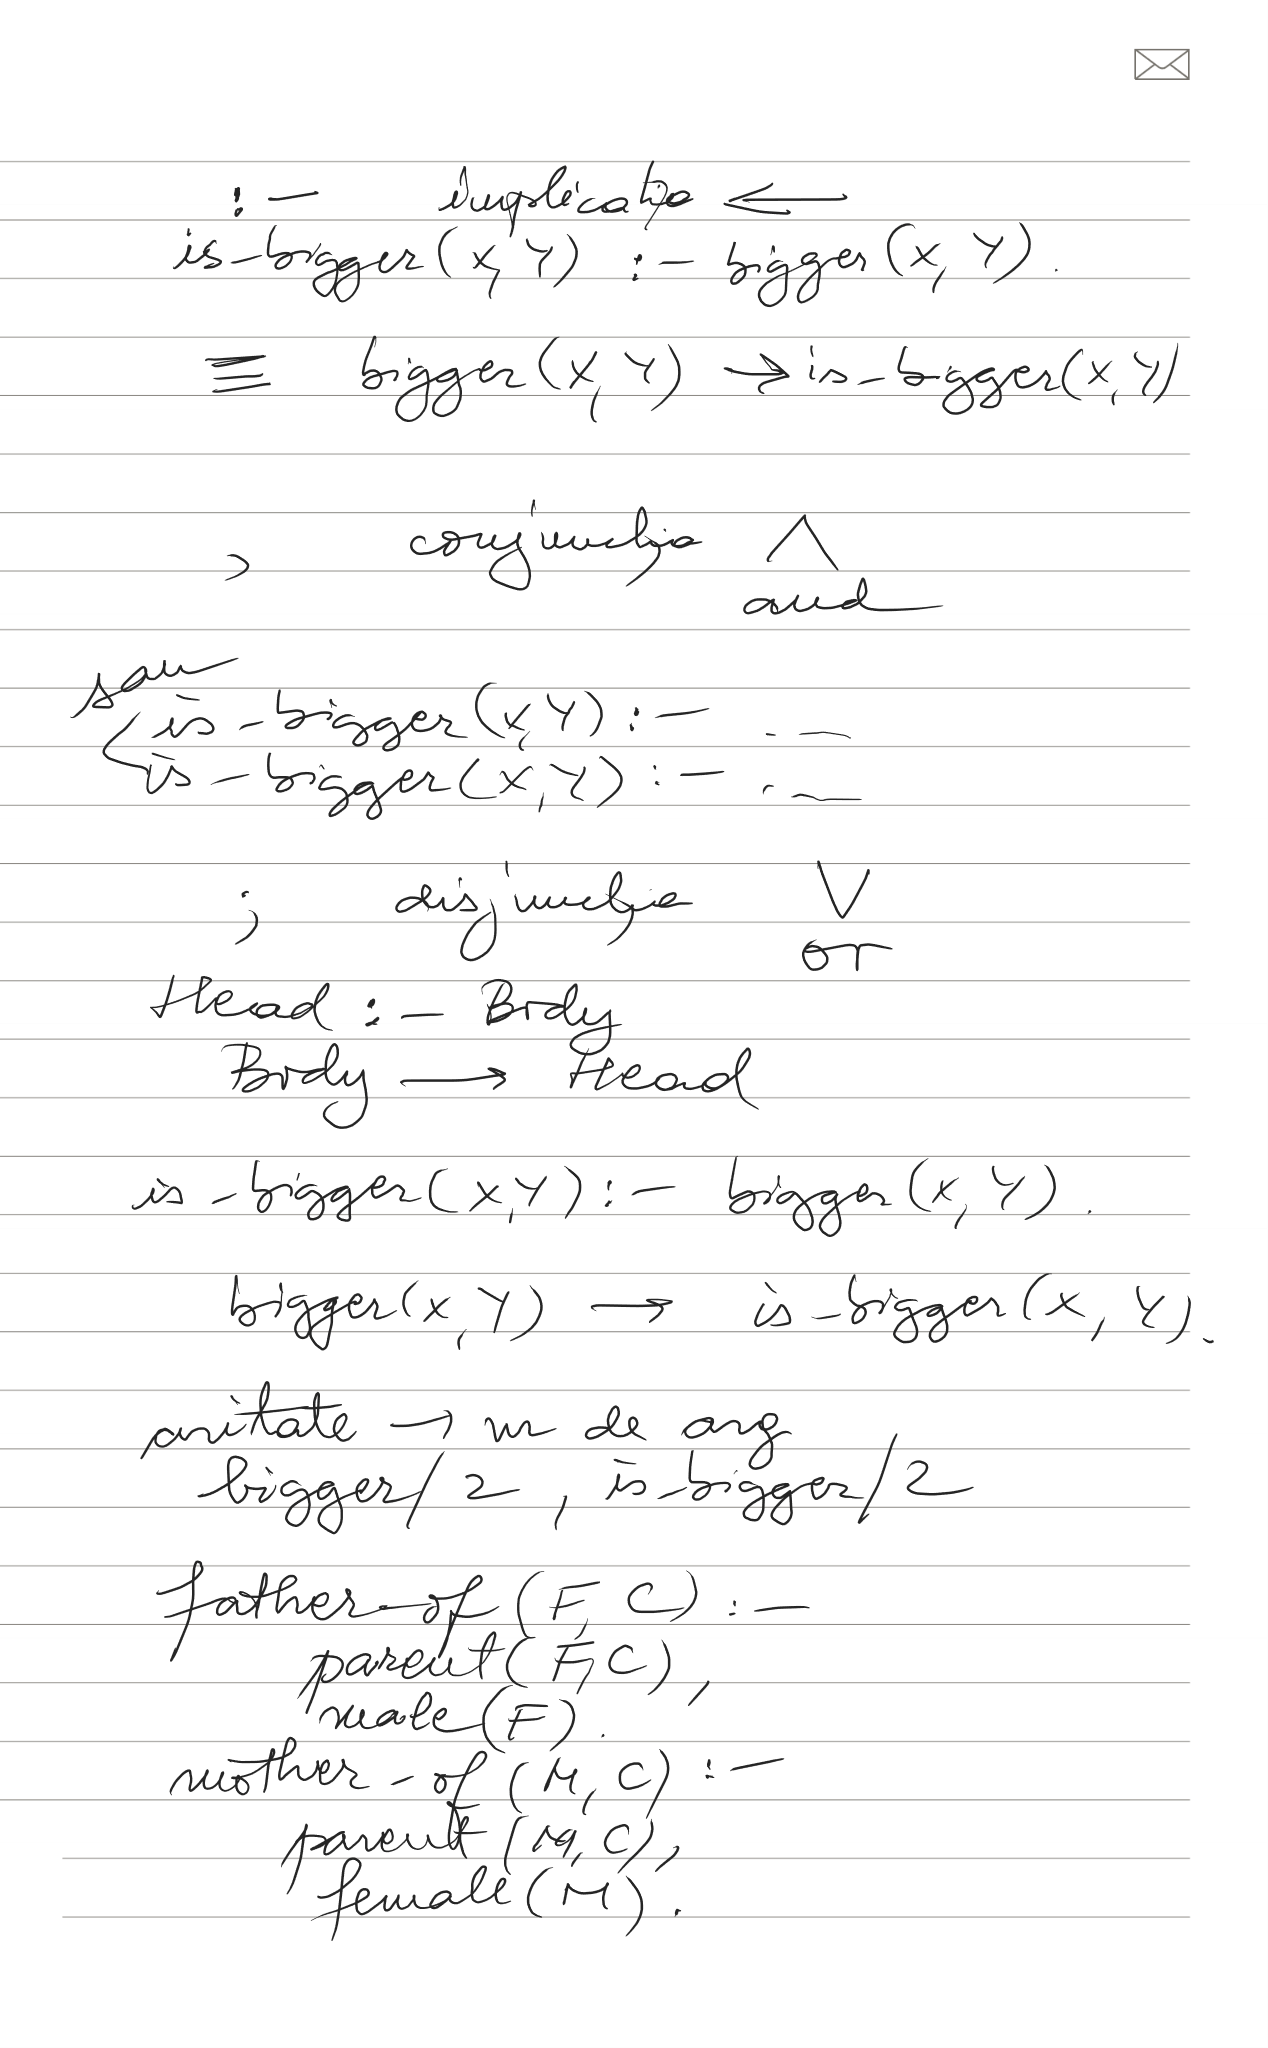 :- implicația ⇐
is-bigger(X, Y) :- bigger(X, Y).
≡ bigger(X, Y) → is-bigger(X, Y)
, conjuncția ∧
and
sau
is-bigger(X, Y) :- ...
is-bigger(X, Y) :- ...
; disjuncția ∨
or
Head :- Body
Body → Head
is-bigger(X, Y) :- bigger(X, Y).
bigger(X, Y) → is-bigger(X, Y).
aritate → nr de arg
bigger/2, is-bigger/2
father-of(F, C) :-
parent(F, C),
male(F).
mother-of(M, C) :-
parent(M, C),
female(M).